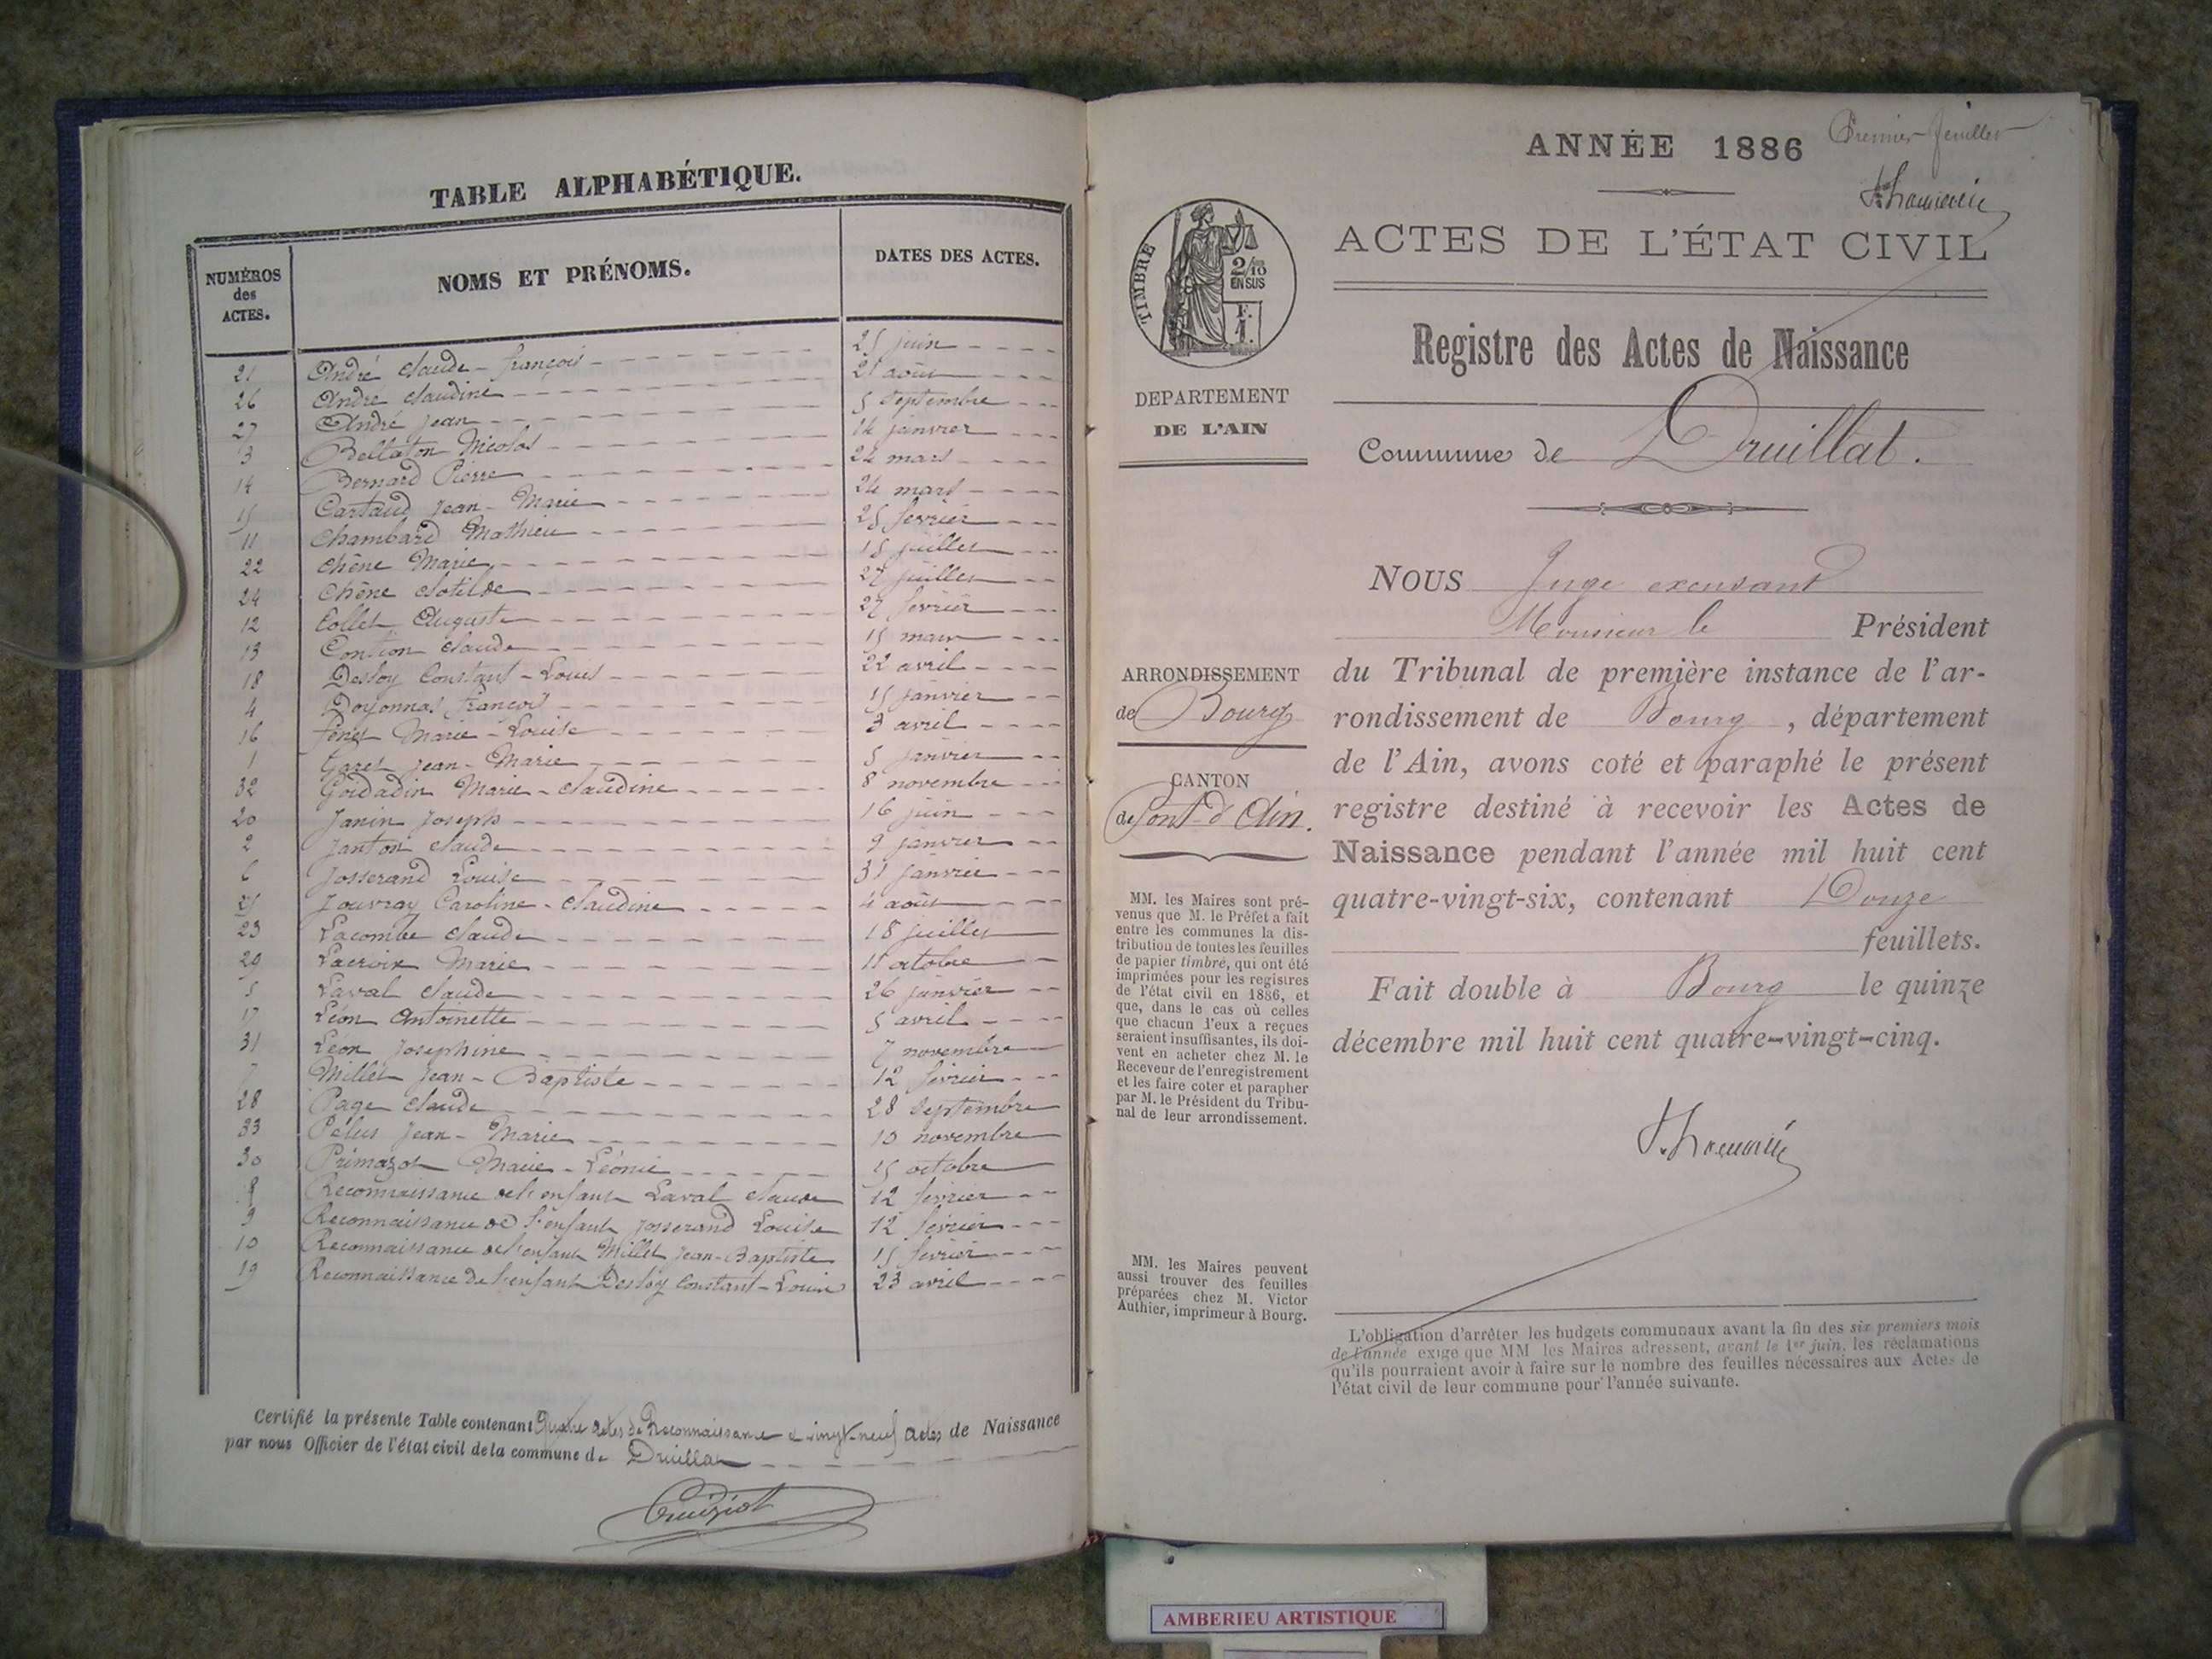 TABLE ALPHABÉTIQUE.
NUMÉROS des ACTES. NOMS ET PRÉNOMS. DATES DES ACTES.
21 André Claude-François 25 juin
26 André Claudine 21 août
27 André Jean 5 septembre
3 Bellaton Nicolas 14 janvier
14 Bernard Pierre 24 mars
15 Cartaud Jean-Marie 24 mars
11 Chambard Mathieu 25 février
22 Chêne Marie 15 juillet
24 Chêne Clotilde 27 juillet
12 Collet Auguste 27 février
13 Claude 15 mars
18 Desloy Constant-Louis 22 avril
4 Doyonnas François 15 janvier
16 Marie-Louise 3 avril
1 Garet Jean-Marie 5 janvier
32 Goidadin Marie-Claudine 8 novembre
20 Janin Joseph 16 juin
2 Janton Claude 9 janvier
6 Josserand Louise 31 janvier
25 Jouvray Caroline-Claudine 4 août
23 Lacombe Claude 18 juillet
29 Lacroix Marie 11 octobre
5 Laval Claude 26 janvier
17 Léon Antoinette 5 avril
31 Léon Josephine 7 novembre
7 Millet Jean-Baptiste 12 février
28 Page Claude 28 septembre
33 Pélus Jean-Marie 10 novembre
30 Primazot Marie-Léonie 15 octobre
8 Reconnaissance de l'enfant Laval Claude 12 février
9 Reconnaissance de l'enfant Josserand Louise 12 février
10 Reconnaissance de l'enfant Millet Jean-Baptiste 15 février
19 Reconnaissance de l'enfant Desloy Constant-Louis 23 avril
Certifié la présente Table contenant Quatre actes de Reconnaissance et vingt-neuf actes de Naissance
par nous Officier de l'état civil de la commune de Druillat
ANNÉE 1886 Premier feuillet
ACTES DE L'ÉTAT CIVIL
TIMBRE
2/10
EN SUS
F.
1.
Registre des Actes de Naissance
DEPARTEMENT
DE L'AIN
Commune de Druillat.
NOUS Juge excusant
Monsieur le Président
du Tribunal de première instance de l'ar-
rondissement de Bourg, département
de l'Ain, avons coté et paraphé le présent
registre destiné à recevoir les Actes de
Naissance pendant l'année mil huit cent
quatre-vingt-six, contenant Douze
feuillets.
Fait double à Bourg le quinze
décembre mil huit cent quatre-vingt-cinq.
ARRONDISSEMENT
de Bourg
CANTON
de Pont-d'Ain.
MM. les Maires sont pré-
venus que M. le Préfet a fait
entre les communes la dis-
tribution de toutes les feuilles
de papier timbré, qui ont été
imprimées pour les registres
de l'état civil en 1886, et
que, dans le cas où celles
que chacun d'eux a reçues
seraient insuffisantes, ils doi-
vent en acheter chez M. le
Receveur de l'enregistrement
et les faire coter et parapher
par M. le Président du Tribu-
nal de leur arrondissement.
MM. les Maires peuvent
aussi trouver des feuilles
préparées chez M. Victor
Authier, imprimeur à Bourg.
L'obligation d'arrêter les budgets communaux avant la fin des six premiers mois
de l'année exige que MM les Maires adressent, avant le 1er juin, les réclamations
qu'ils pourraient avoir à faire sur le nombre des feuilles nécessaires aux Actes de
l'état civil de leur commune pour l'année suivante.
AMBERIEU ARTISTIQUE